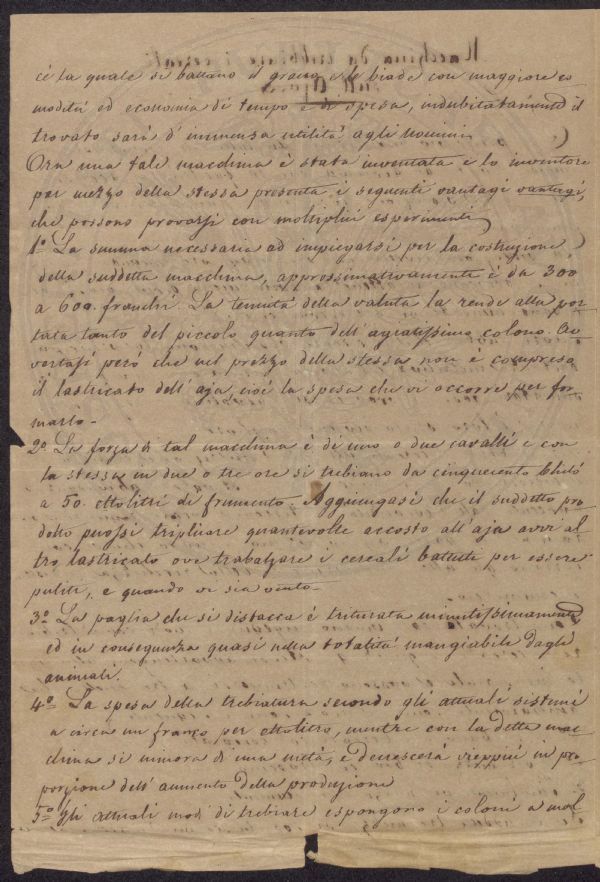 cé la quale si battano il grano e le biade con maggiore co
modità ed economia di tempo e di spesa, indubitatamente il
trovato sarà d'immenza utilità agli Uomini
Ora una tale macchina è stata inventata e lo inventore
per mezzo della stessa presenta i seguenti vantagi vantagi,
che possono provarsi con moltiplici esperimenti
1º La summa necessaria ad impiegarsi per la costruzione
della suddetta macchina, approssimativamente è da 300
a 600. franchi. La tenuità della valuta la rende alla por
tata tanto del piccolo quanto dell'agiatissimo colono. Av
vertasi però che nel prezzo della stessa non è compreso
il lastricato dell'aja, cioè la spesa che vi occorre per for
marlo.
2º La forza di tal macchina è di uno o due cavalli e con
la stessa in due o tre ore si trebiano da cinquecento
a 50. ettolitri di frumento. Aggiungasi che il suddetto pro
dotto puossi triplicare quantevolte accosto all'aja avvi al
tro lastricato ove trabalzare i cereali battuti per essere
puliti, e quando vi sia vento.
3º La paglia che si distacca è triturata minutissimamente
ed in conseguenza quasi nella totalità mangiabile dagli
animali.
4º La spesa della trebiatura secondo gli attuali sistemi
a circa un franco per ettolitro, mentre con la detta mac
china si minora di una metà, e decrescerà vieppiù in pro
porzione dell'aumento della produzione
5º gli attuali modi di trebiare espongono i coloni a mol